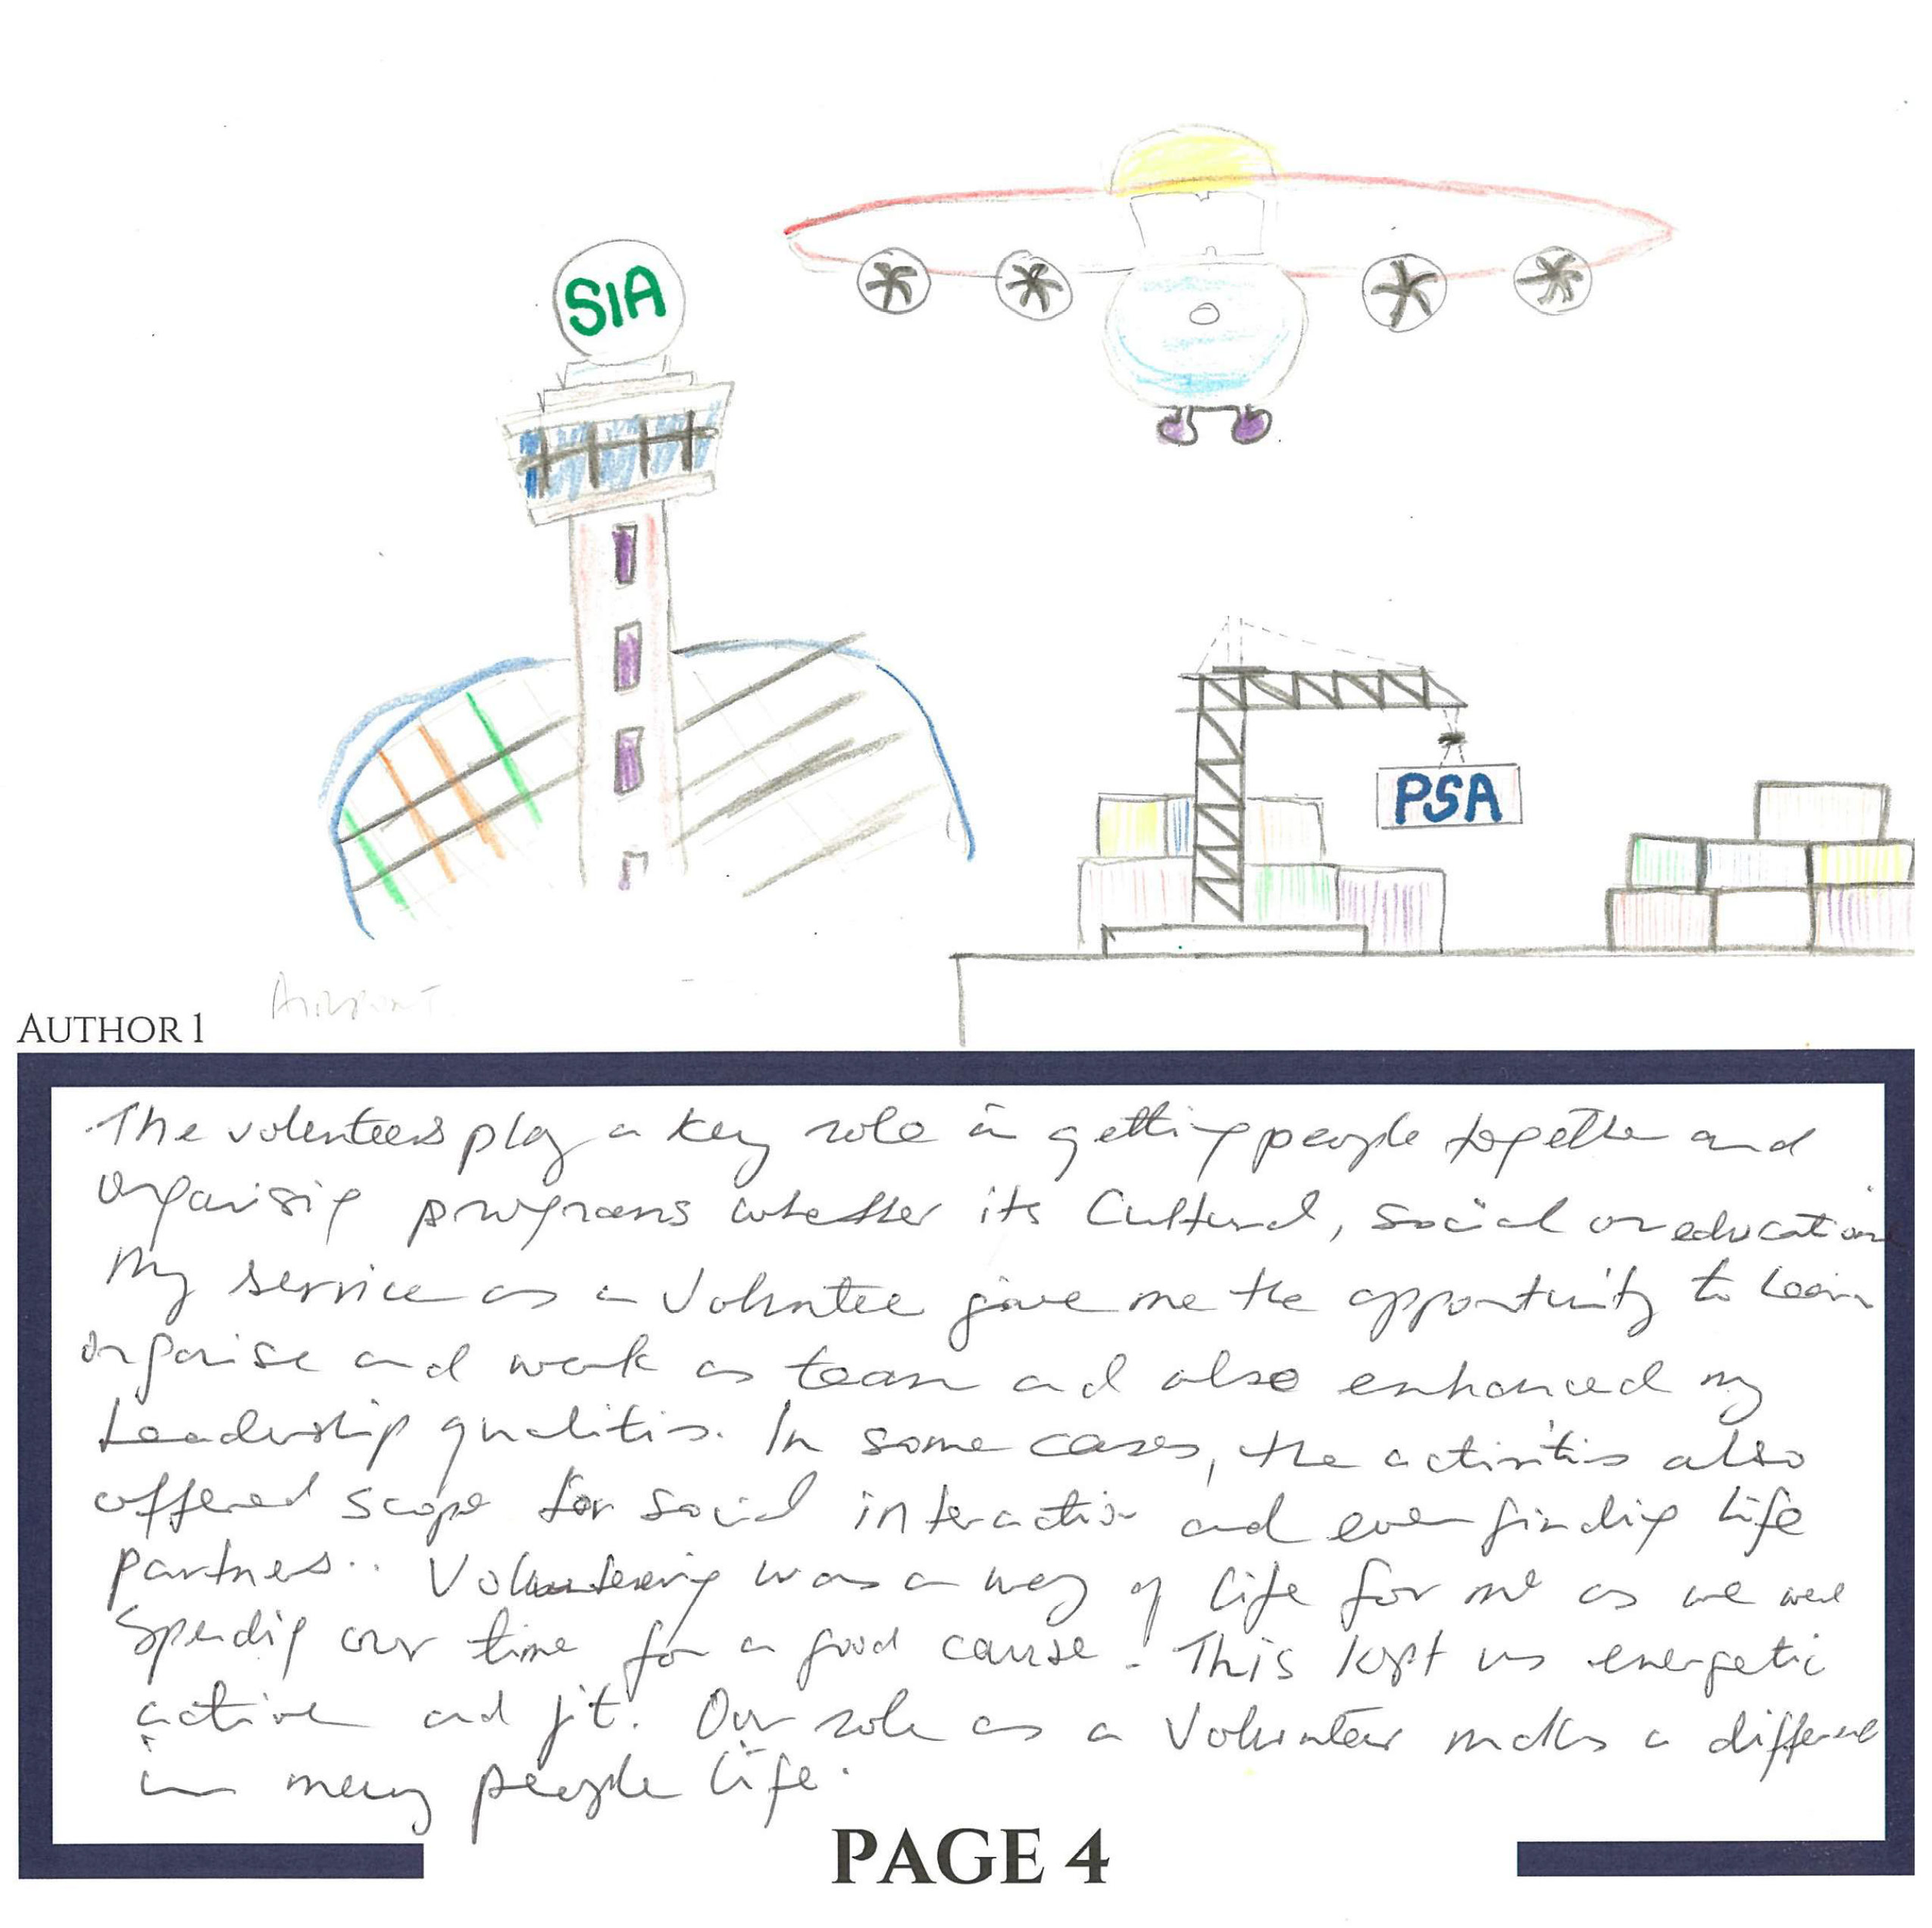 SIA
PSA
AIRPORT
AUTHOR 1
The volunteers play a key role in getting people together and
organising programs whether its Cultural, social or education
My service as a Volunteer gave me the opportunity to learn
organise and work as team and also enhanced my
Leadership qualities. In some cases, the activities also
offered scope for social interaction and even finding life
partners.. Volunteering was a way of life for me as we were
spending our time for a good cause. This kept us energetic
active and fit. Our role as a Volunteer makes a difference
in many people life.
PAGE 4